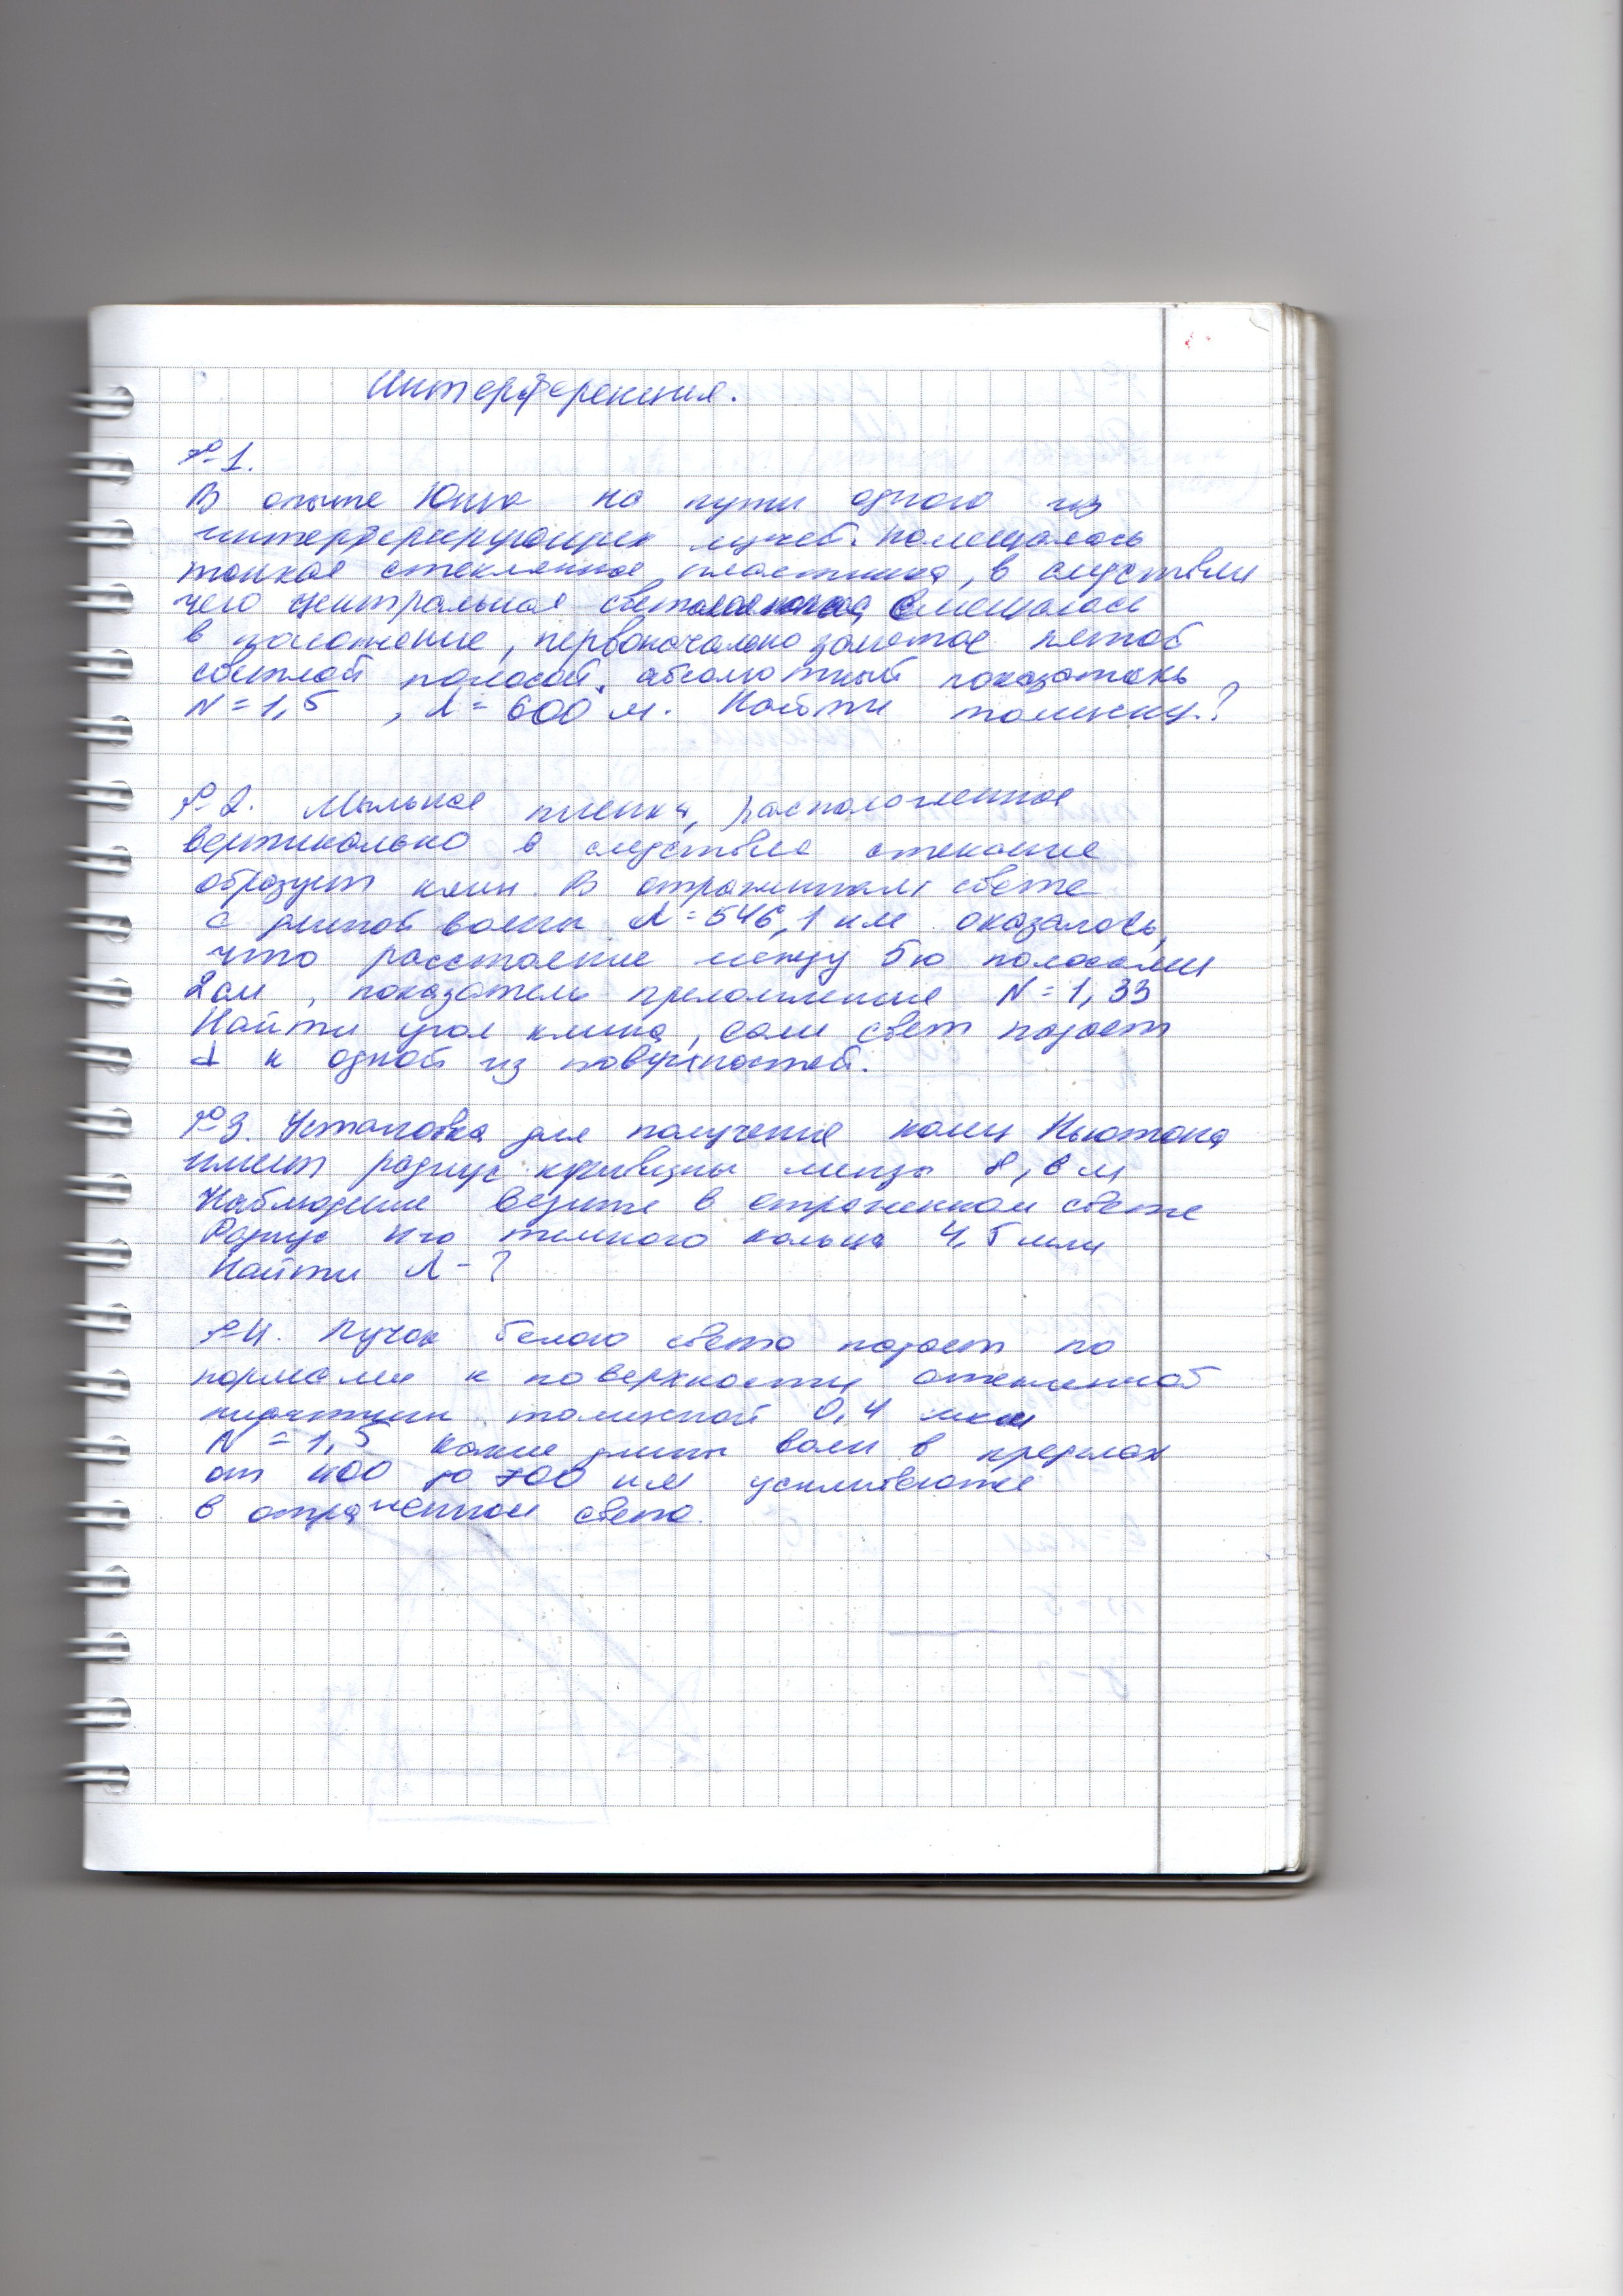 Интерференция.
№1.
В опыте Юнга на пути одного из
интерферирующих лучей. помещалась
тонкая стеклянная пластинка, в следствии
чего центральная светлая полоса смещалась
в положение, первоначально занятое пятой
светлой полосой, абсолютный показатель
N = 1,5 , λ = 600 м. Найти толщину.?
№2. Мыльная пленка, расположенная
вертикально в следствие стекания
образует клин. В отраженном свете
с длиной волны λ = 546,1 нм оказалось,
что расстояние между 5ю полосами
2 см , показатель преломления N = 1,33
Найти угол клина, если свет падает
⊥ к одной из поверхностей.
№3. Установка для получения колец Ньютона
имеет радиус кривизны линзы 8,6 м
Наблюдение ведите в отраженном свете
Радиус 4го темного кольца 4,5 мм
Найти λ - ?
№4. Пучок белого света падает по
нормали к поверхности стеклянной
пластины толщиной 0,4 мкм
N = 1,5 какие длины волн в пределах
от 400 до 700 нм усиливаются
в отраженном свете.